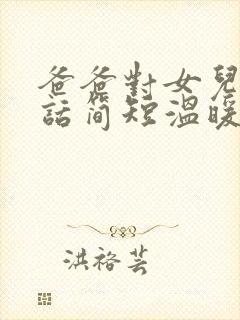 爸爸對女兒
話簡短溫暖
洪裕芸